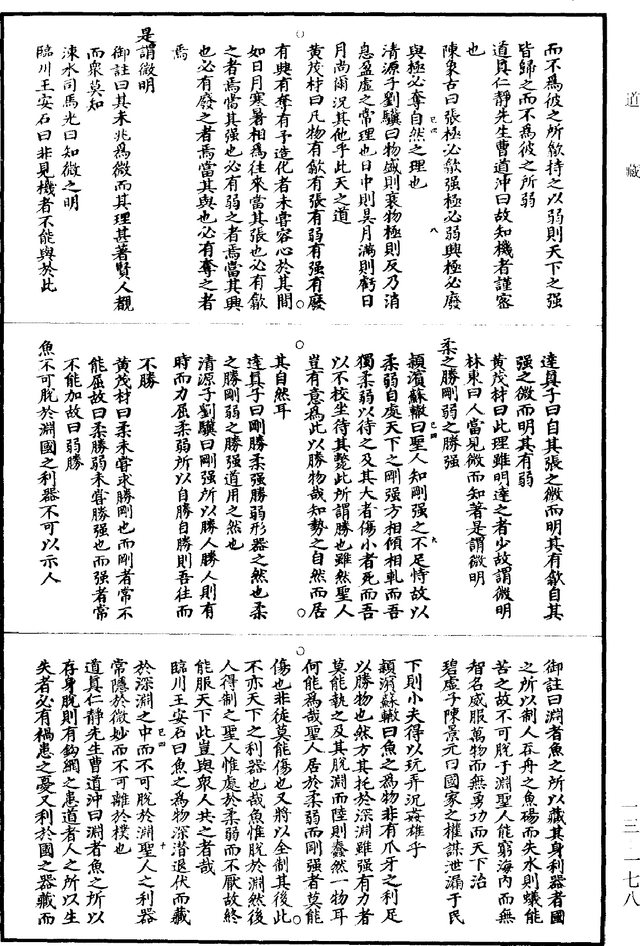 道藏
而不為彼之所歙持之以弱則天下之强
皆歸之而不為彼之所弱
道真仁靜先生曹道沖曰故知機者謹密
也
陳象古曰張極必歙强極必弱興極必廢
已四 八
與極必奪自然之理也
清源子劉驥曰物盛則衰物極則反乃消
息盈虛之常理也日中則昃月滿則虧日
月尚爾況其他乎此天之道
黃茂材曰凡物有歙有張有弱有强有廢
有興有奪有予造化者未嘗容心於其間
如日月寒暑相為往來當其張也必有歙
之者焉當其强也必有弱之者焉當其興
也必有廢之者焉當其與也必有奪之者
焉
是謂微明
御註曰其未兆為微而其理甚著賢人覩
而衆莫知
涑水司馬光曰知微之明
臨川王安石曰非見機者不能與於此
達真子曰自其張之微而明其有歙自其
强之微而明其有弱
黃茂材曰此理雖明達之者少故謂微明
林東曰人當見微而知著是謂微明
柔之勝剛弱之勝强
已四 九
潁濱蘇轍曰聖人知剛强之不足恃故以
柔弱自處天下之剛强方相傾相軋而吾
獨柔弱以待之及其大者傷小者死而吾
以不校坐待其斃此所謂勝也雖然聖人
豈有意為此以勝物哉知勢之自然而居
其自然耳
達真子曰剛勝柔强勝弱形器之然也柔
之勝剛弱之勝强道用之然也
清源子劉驥曰剛强所以勝人勝人則有
時而力屈柔弱所以自勝自勝則吾往而
不勝
黃茂材曰柔未嘗求勝剛也而剛者常不
能屈故曰柔勝弱未嘗勝强也而强者常
不能加故曰弱勝
魚不可脫於淵國之利器不可以示人
御註曰淵者魚之所以藏其身利器者國
之所以制人吞舟之魚碭而失水則蟻能
苦之故不可脫于淵聖人能窮海內而無
智名威服萬物而無勇功而天下治
碧虛子陳景元曰國家之權謀泄漏于民
下則小夫得以玩弄況姦雄乎
潁濱蘇轍曰魚之為物非有爪牙之利足
以勝物也然方其托於深淵雖强有力者
莫能執之及其脫淵而陸則蠢然一物耳
何能為哉聖人居於柔弱而剛强者莫能
傷也非徒莫能傷也又將以全制其後此
不亦天下之利器也哉魚惟脫於淵然後
人得制之聖人惟處於柔弱而不厭故終
能服天下此豈與衆人共之者哉
臨川王安石曰魚之為物深潛退伏而藏
已四 十
於深淵之中而不可脫於淵聖人之利器
常隱於微妙而不可離於樸也
道真仁靜先生曹道沖曰淵者魚之所以
存身脫則有鈎網之患道者人之所以生
失者必有禍患之憂又利於國之器藏而
一三—二一七八